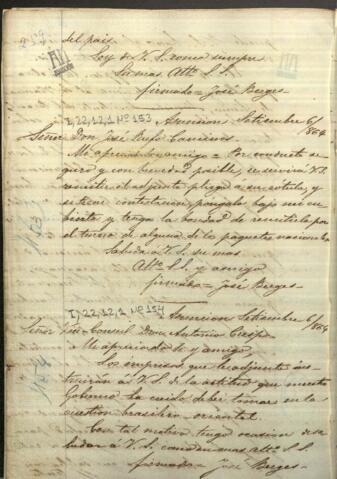 del pais.
Soy de V. S. como siempre
Su mas Atto. S. S.
firmado = José Berges =
I,22,12,1 Nº 153 Asuncion Setiembre 6/864
Señor Don José Rufo Caminos
Mi apreciado amigo = Por conducto se
guro y con brevedad posible, se servirá Vd.
remitir el adjunto pliego a su rotulo, y
si tiene contestacion, pongala bajo mi cu
bierta y tenga la bondad de remitirla por
el turno de alguno de los paquetes nacionales
Saluda á V. S. su mas
Atto. S. S. y amigo
firmado = José Berges =
I,22,12,1 Nº 154 Asuncion Setiembre 6/864
Señor Consul Don Antonio Crespo
Mi apreciado Sr. y amigo,
Los impresos que le adjunto ins
truirán á V. S. de la actitud que nuestro
Gobierno ha creido deber tomar en la
cuestion brasilero-oriental.
Con tal motivo tengo ocasion de sa
ludar á V. S. como su mas atto. S. S.
firmado = José Berges =